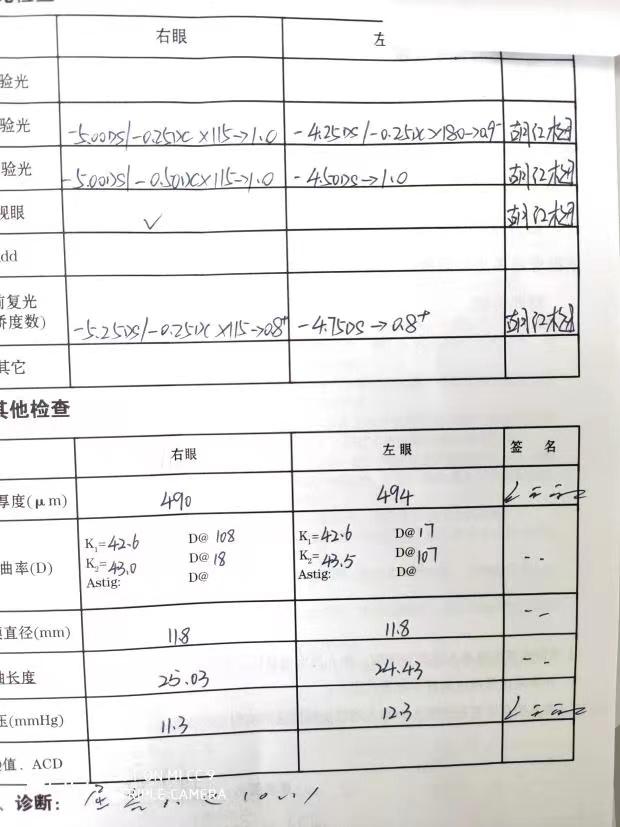 右眼 左
验光
验光 -5.00DS/-0.25DC×115→1.0 -4.25DS/-0.25DC×180→0.9⁻
验光 -5.00DS/-0.50DC×115→1.0 -4.50DS→1.0
视眼 √
dd
前复光
矫度数) -5.25DS/-0.25DC×115→0.8⁺ -4.75DS→0.8⁺
其它
其他检查
右眼 左眼 签 名
厚度(μm) 490 494
K₁=42.6 D@ 108 K₁=42.6 D@ 17
曲率(D) K₂=43.0 D@ 18 K₂=43.5 D@ 107
Astig: D@ Astig: D@
直径(mm) 11.8 11.8
轴长度 25.03 24.43
压(mmHg) 11.3 12.3
值. ACD
ON MI CC 9
MPLE CAMERA
、诊断: